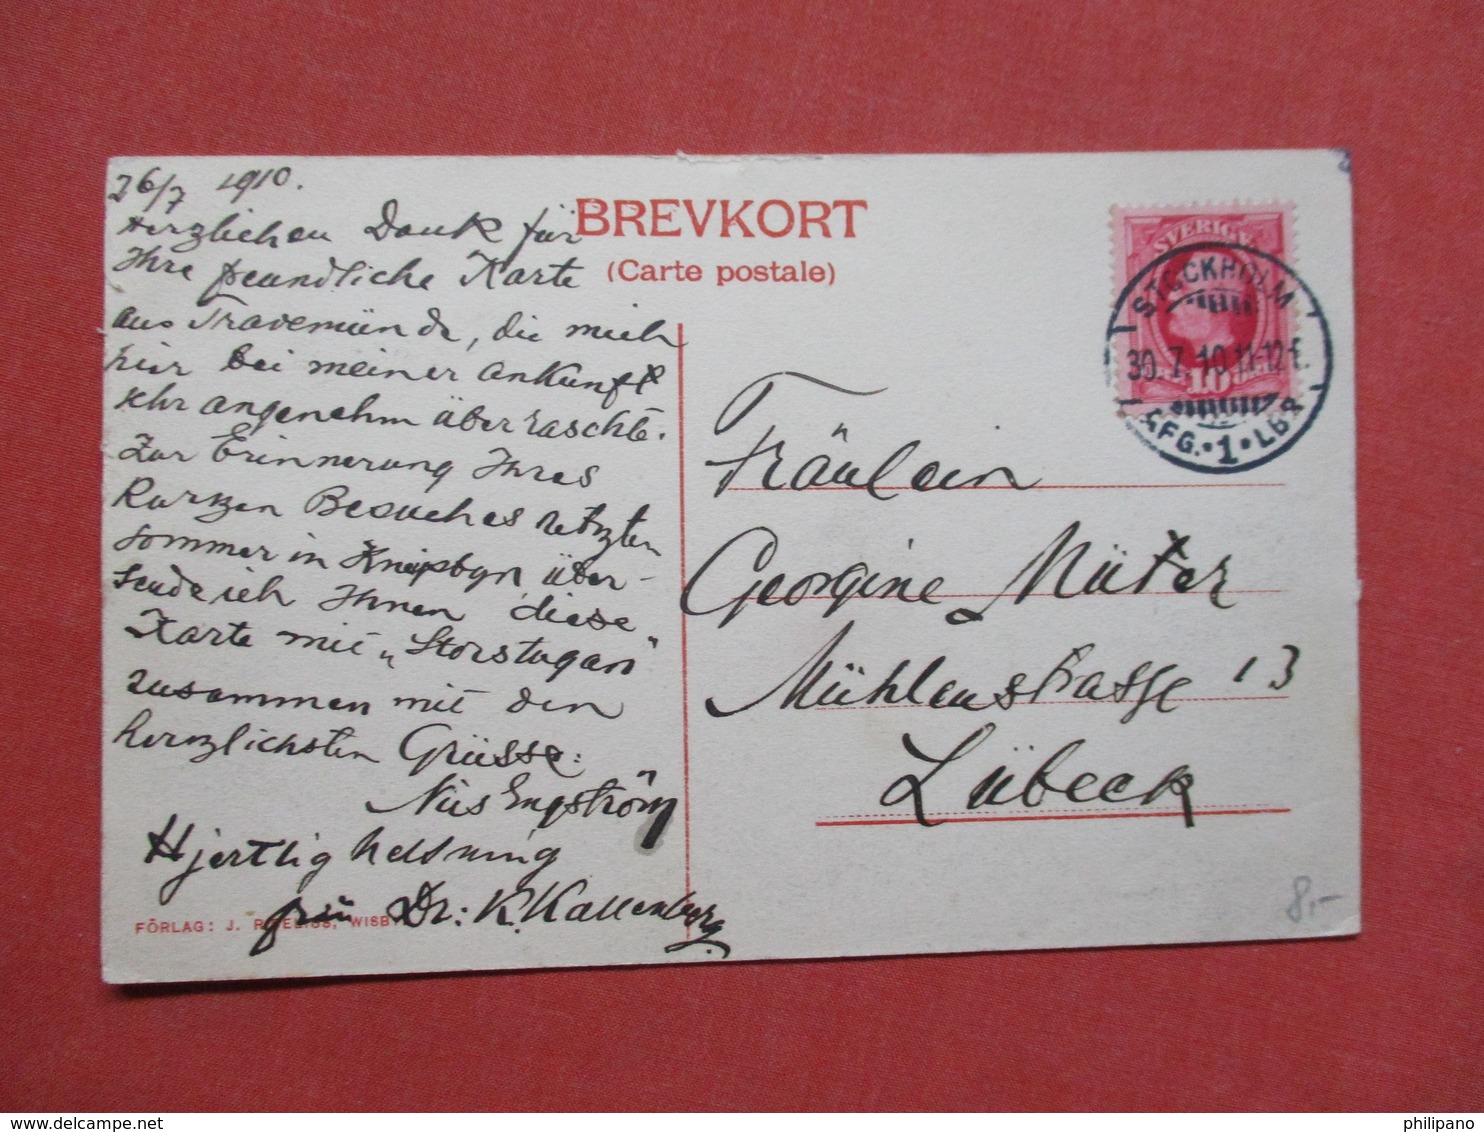 26/7 1910.
Herzlichen Dank für
Ihre freundliche Karte
aus Travemünde, die mich
hier bei meiner Ankunft
sehr angenehm überraschte.
Zur Erinnerung Ihres
kurzen Besuches letzten
Sommer in Kneipbyn über-
sende ich Ihnen diese
Karte mit „Storstugan"
zusammen mit den
herzlichsten Grüsse:
Nils Engström
Hjertlig helsning
från Dr: K. Kallenberg.
FÖRLAG: J. WISBY
BREVKORT
(Carte postale)
SVERIGE
10
STOCKHOLM
30.7.10.11-12 f.
1 LBR
Fräulein
Georgine Müter
Mühlenstrasse 13
Lübeck
8,-
philipano
www.delcampe.net